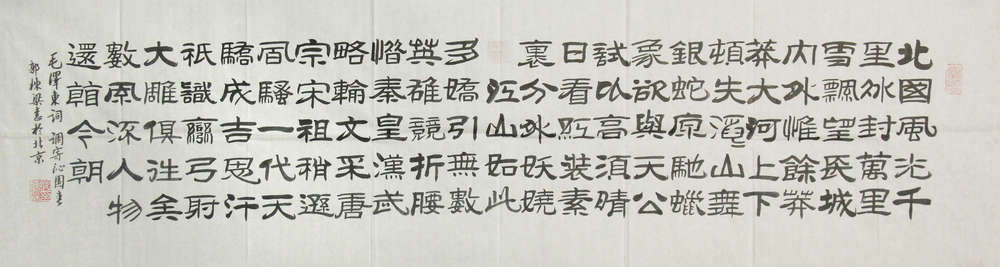 北國風光千
里冰封萬里
雪飄望長城
内外惟餘莽
莽大河上下
頓失滔〻山舞
銀蛇原馳蠟
象欲與天公
試比高須晴
日看紅裝素
裹分外妖嬈
江山如此
多嬌引無數
英雄競折腰
惜秦皇漢武
略輸文采唐
宗宋祖稍遜
風騷一代天
驕成吉思汗
祇識彎弓射
大雕俱往矣
數風流人物
還看今朝
毛澤東詞 调寄沁園春
郭棟梁書於北京